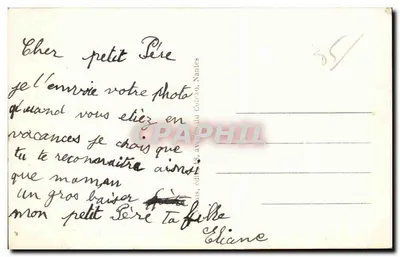 Cher petit Père
je t'envoie votre photo
quand vous etiez en
vacances je crois que
tu te reconnaitra ainsi
que maman
un gros baiser
mon petit Père ta fille
Eliane
85/
PHILL
Nantes